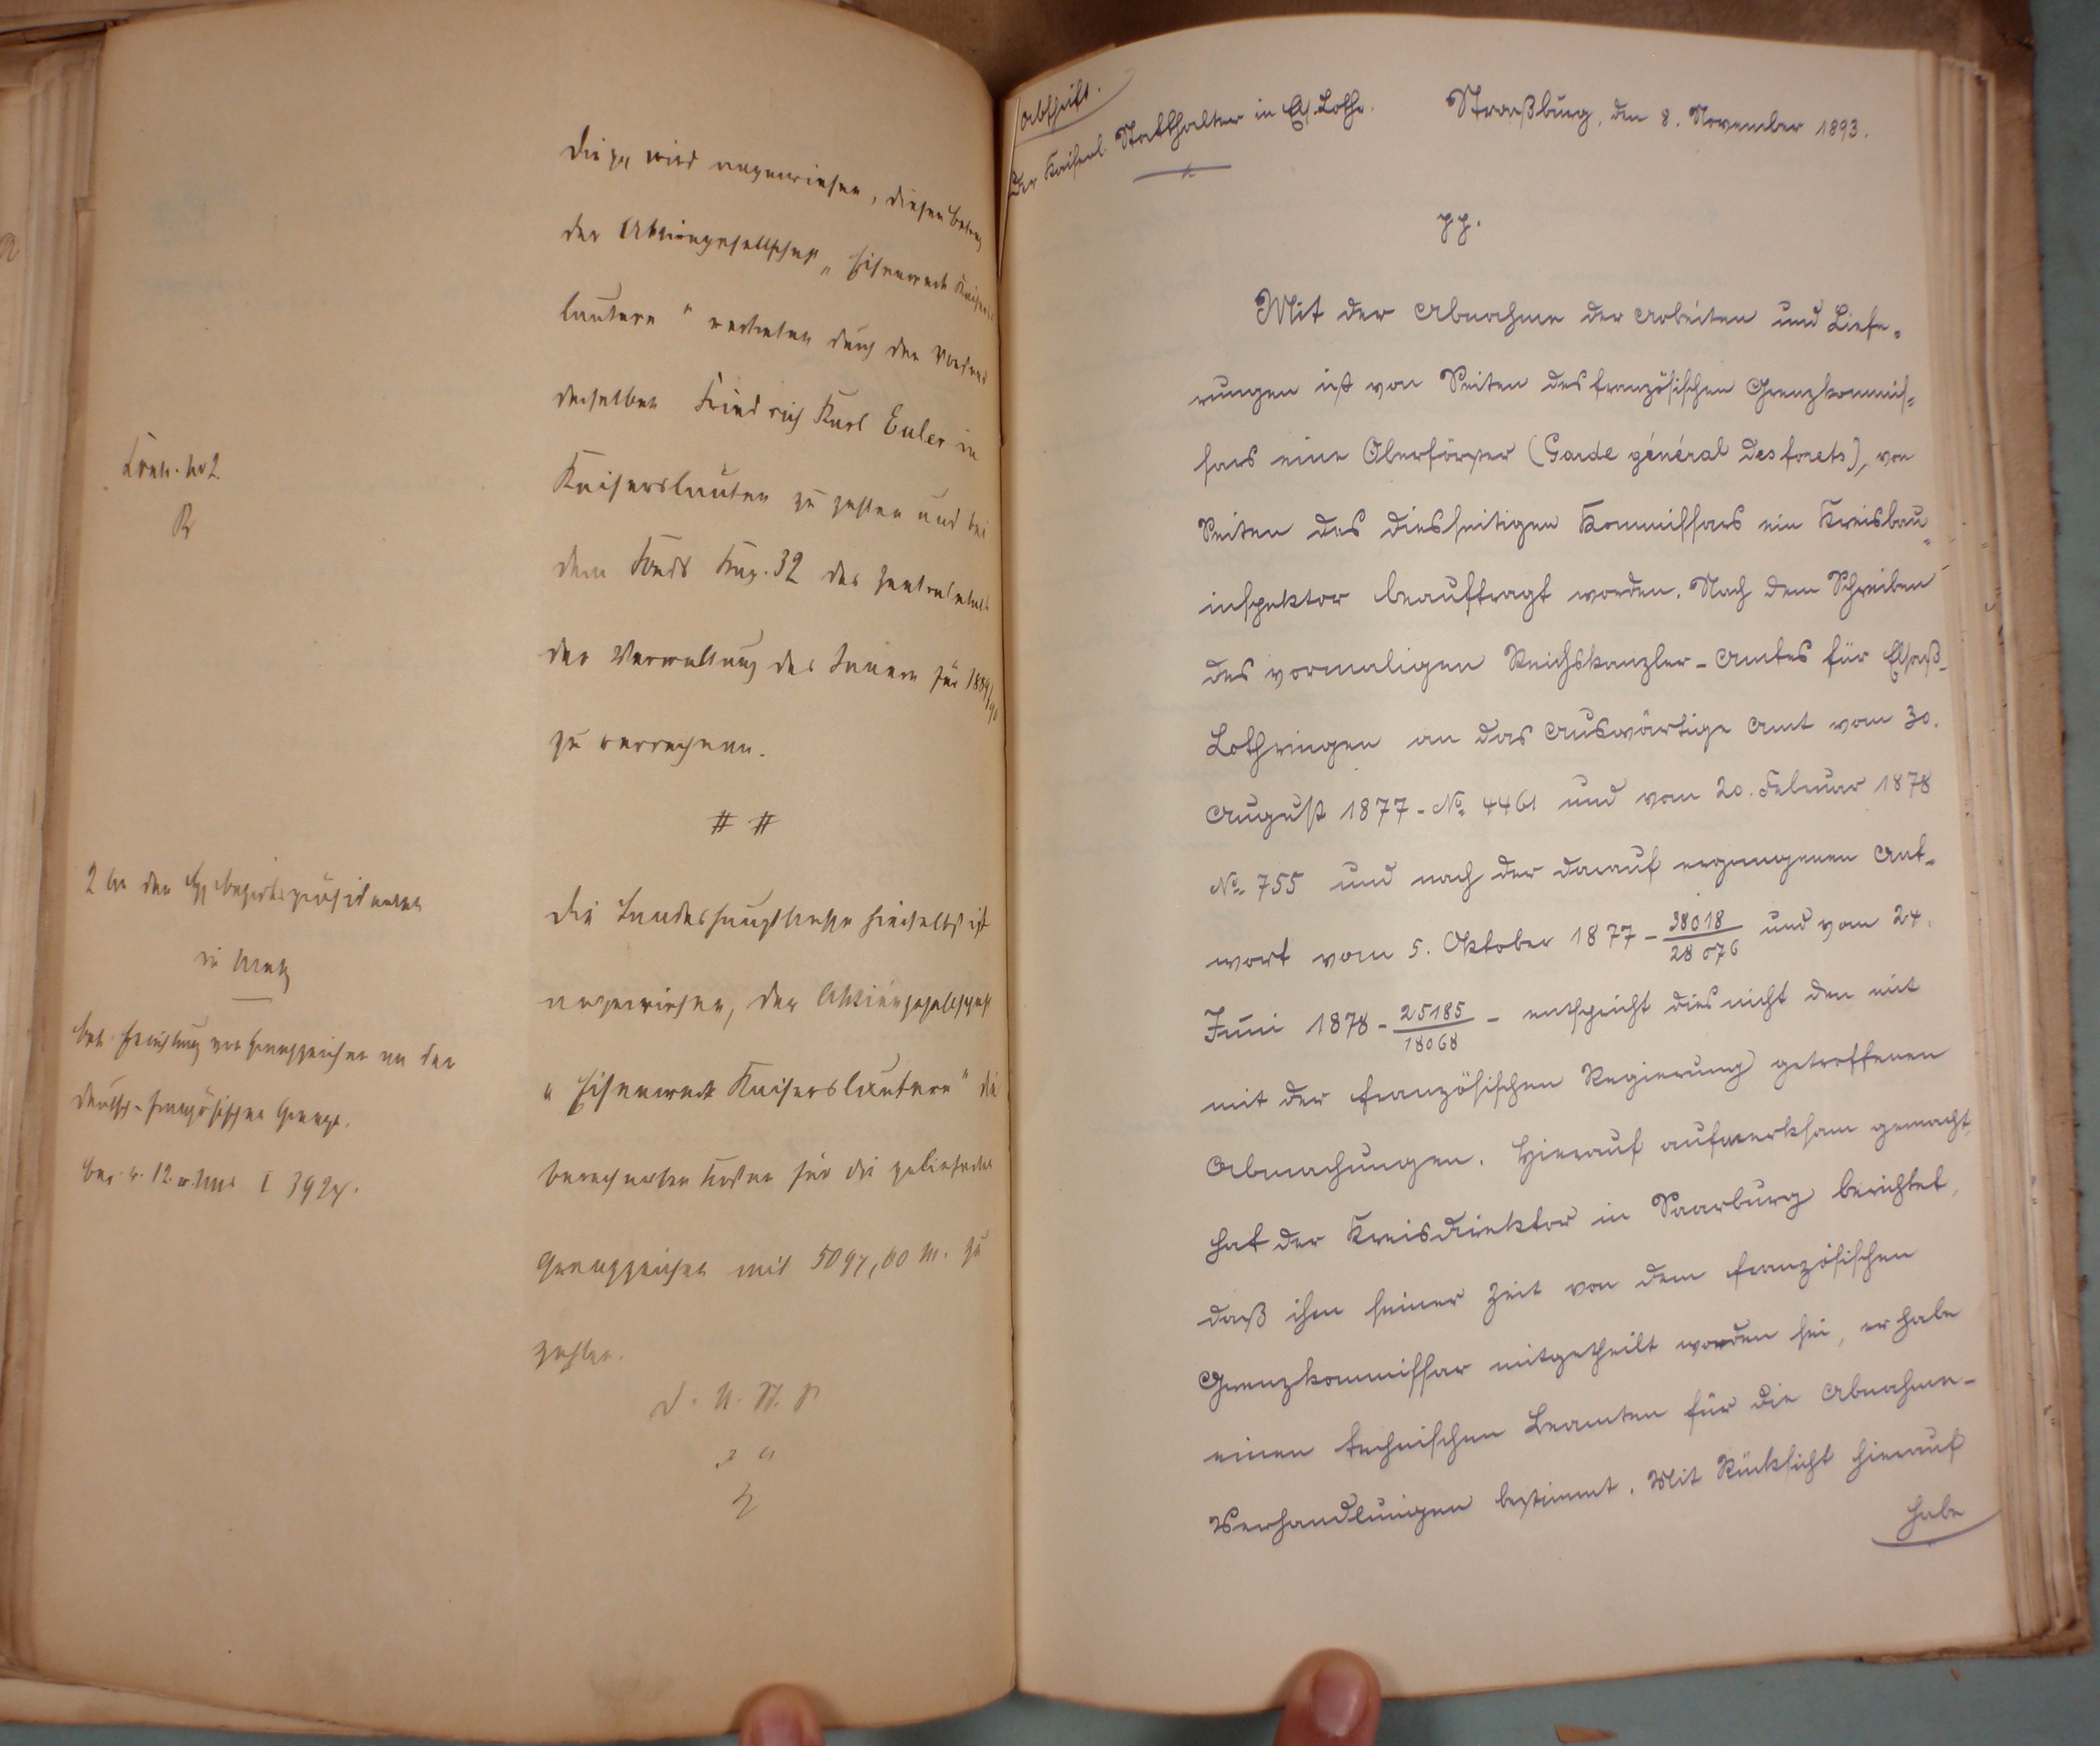 Die pp wird angewiesen, diesen Betrag
der Aktiengesellschaft „Eisenwerk Kaisers-
lautern" vertreten durch den Vorstand
derselben Friedrich Karl Euler in
Kaiserslautern zu zahlen und bei
dem Fonds Kap. 32 des
der Verwaltung des Innern für 1889/90
zu verrechnen.
# #
2 An den H Bezirkspräsidenten
in Metz
betr. Errichtung von Grenzzeichen an der
deutsch-französischen Grenze.
Ber. v. 12. I 3924.
Die Landeshauptkasse hierselbst ist
angewiesen, der Aktiengesellschaft
„Eisenwerk Kaiserslautern" die
berechneten Kosten für die gelieferten
Grenzzeichen mit 5097,60 M. zu
zahlen.
D. U. St. S.
Abschrift.
Der Kaiserl. Statthalter in Els. Lothr. Straßburg, den 8. November 1893.
pp.
Mit der Abnahme der Arbeiten und Liefe-
rungen ist von Seiten des französischen Grenzkommis-
sars eine Oberförster (Garde général des forets), von
Seiten des diesseitigen Kommissars ein Kreisbau-
inspektor beauftragt worden. Nach dem Schreiben
des vormaligen Reichskanzler-Amtes für Elsaß-
Lothringen an das Auswärtige Amt vom 30.
August 1877 - No. 4461 und vom 20. Februar 1878
No. 755 und nach der darauf ergangenen Ant-
wort vom 5. Oktober 1877 - 38018/28076 und vom 24.
Juni 1878 - 25185/18068 - entspricht dies nicht den mit
mit der französischen Regierung getroffenen
Abmachungen. Hierauf aufmerksam gemacht,
hat der Kreisdirektor in Saarburg berichtet,
daß ihm seiner Zeit von dem französischen
Grenzkommissar mitgetheilt worden sei, er habe
einen technischen Beamten für die Abnahme-
Verhandlungen bestimmt. Mit Rücksicht hierauf
habe